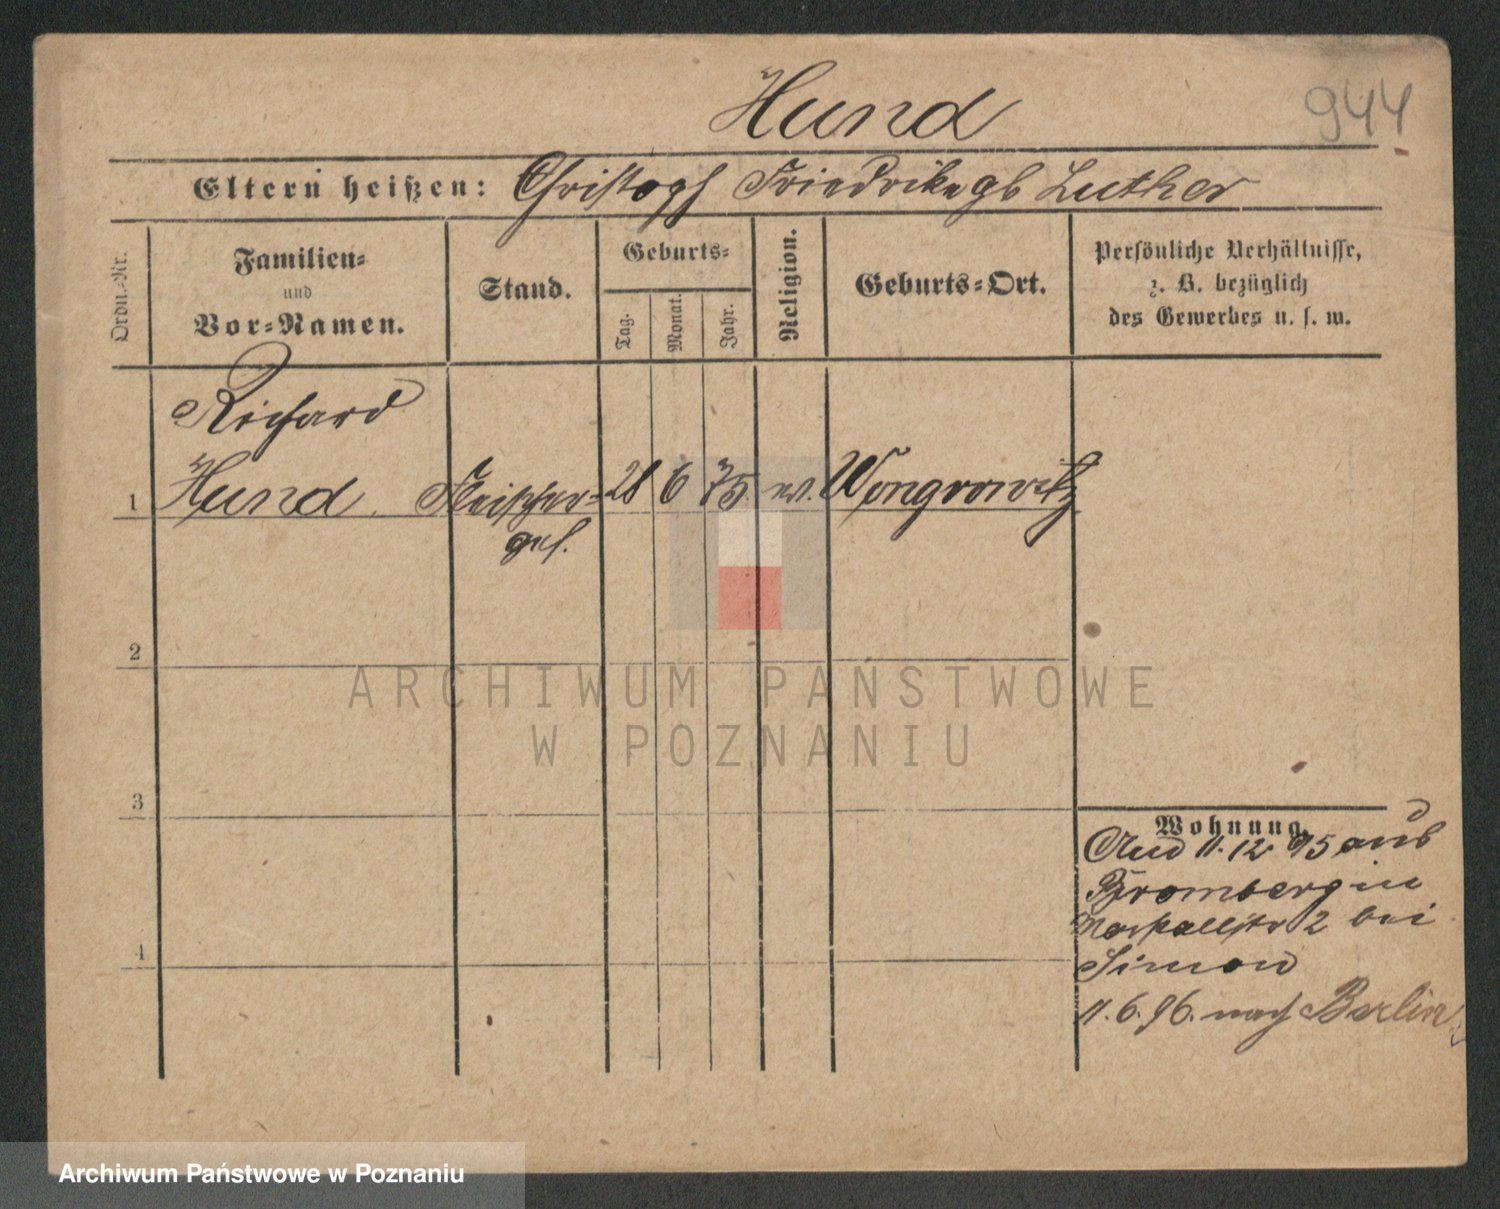 Hund
944
Eltern heißen: Christoph Friedrike gb Luther
Ordn.-Nr.
Familien-
und
Vor-Namen.
Stand.
Geburts-
Tag.
Monat.
Jahr.
Religion.
Geburts-Ort.
Persönliche Verhältnisse,
z. B. bezüglich
des Gewerbes u. s. w.
Richard
1 Hund Fleischer- 28 6 75. ev. Wongrowitz
ges.
2
ARCHIWUM PAŃSTWOWE
W POZNANIU
3
Wohnung.
11.12 95 aus
Bromberg in
2 bei
Simon
4
11.6.96. nach Berlin
Archiwum Państwowe w Poznaniu